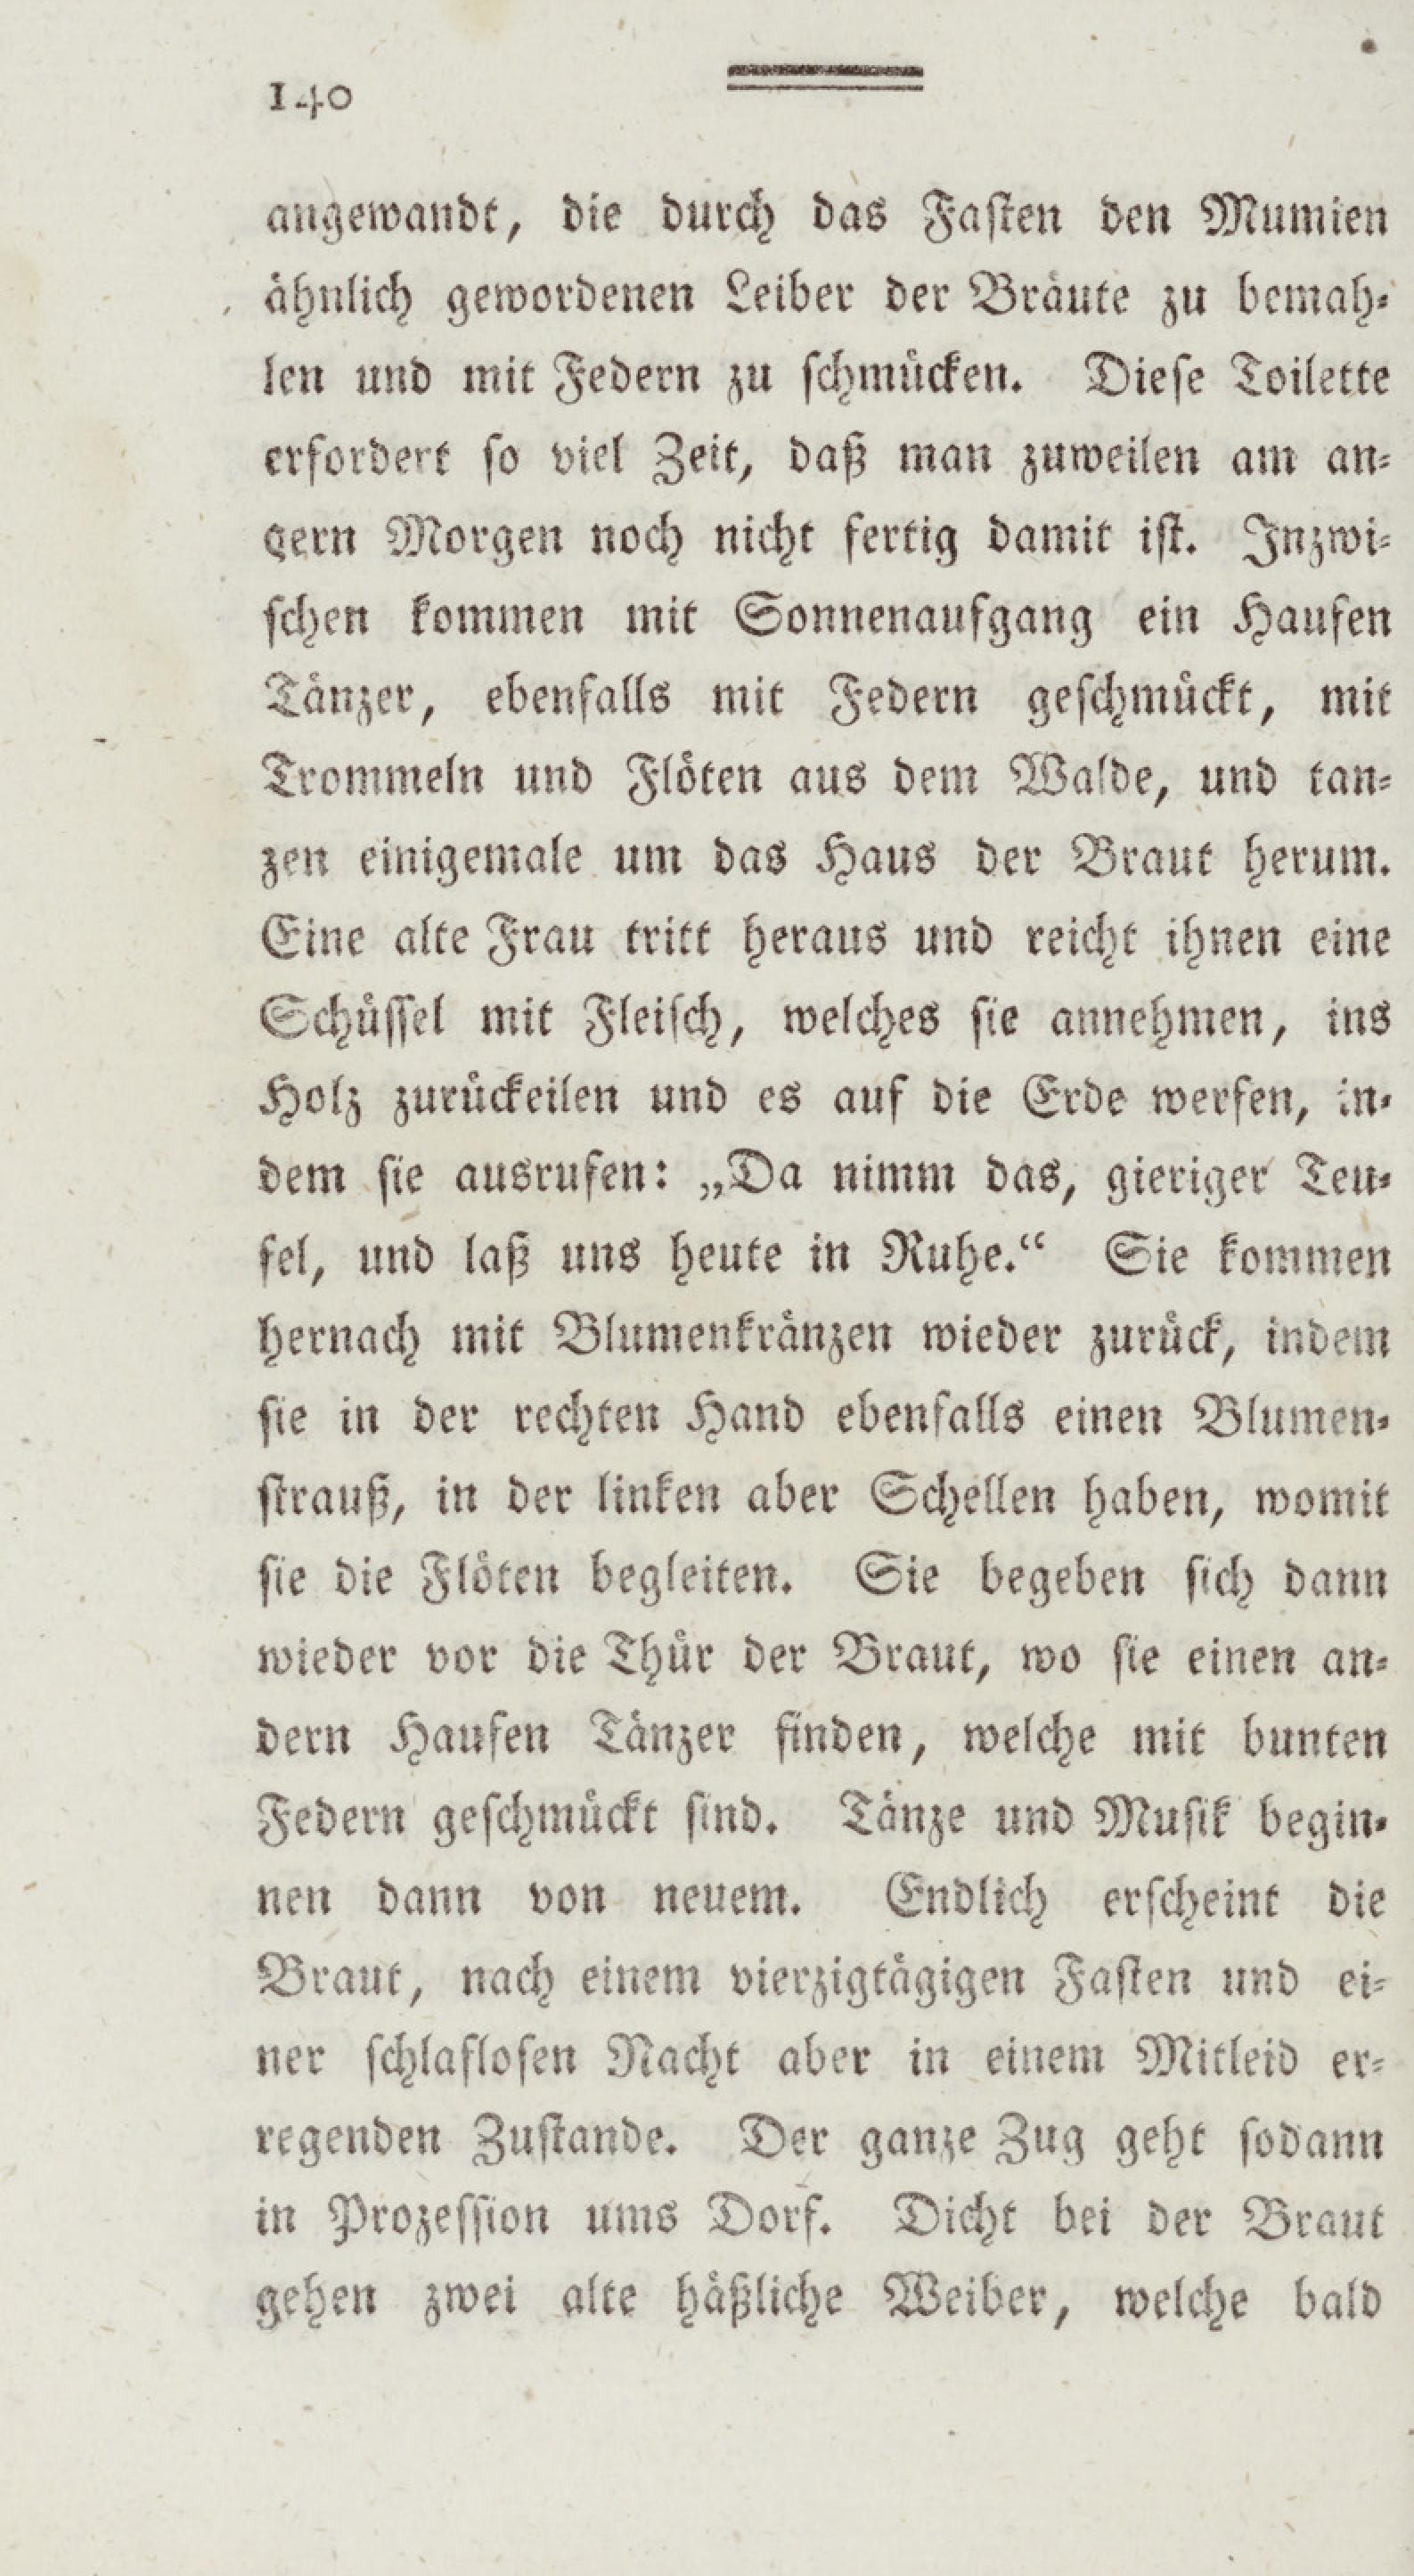 140
angewandt, die durch das Fasten den Mumien
ähnlich gewordenen Leiber der Bräute zu bemah-
len und mit Federn zu schmücken. Diese Toilette
erfordert so viel Zeit, daß man zuweilen am an-
gern Morgen noch nicht fertig damit ist. Inzwi-
schen kommen mit Sonnenaufgang ein Haufen
Tänzer, ebenfalls mit Federn geschmückt, mit
Trommeln und Flöten aus dem Walde, und tan-
zen einigemale um das Haus der Braut herum.
Eine alte Frau tritt heraus und reicht ihnen eine
Schüssel mit Fleisch, welches sie annehmen, ins
Holz zurückeilen und es auf die Erde werfen, in-
dem sie ausrufen: „Da nimm das, gieriger Teu-
fel, und laß uns heute in Ruhe.“ Sie kommen
hernach mit Blumenkränzen wieder zurück, indem
sie in der rechten Hand ebenfalls einen Blumen-
strauß, in der linken aber Schellen haben, womit
sie die Flöten begleiten. Sie begeben sich dann
wieder vor die Thür der Braut, wo sie einen an-
dern Haufen Tänzer finden, welche mit bunten
Federn geschmückt sind. Tänze und Musik begin-
nen dann von neuem. Endlich erscheint die
Braut, nach einem vierzigtägigen Fasten und ei-
ner schlaflosen Nacht aber in einem Mitleid er-
regenden Zustande. Der ganze Zug geht sodann
in Prozession ums Dorf. Dicht bei der Braut
gehen zwei alte häßliche Weiber, welche bald